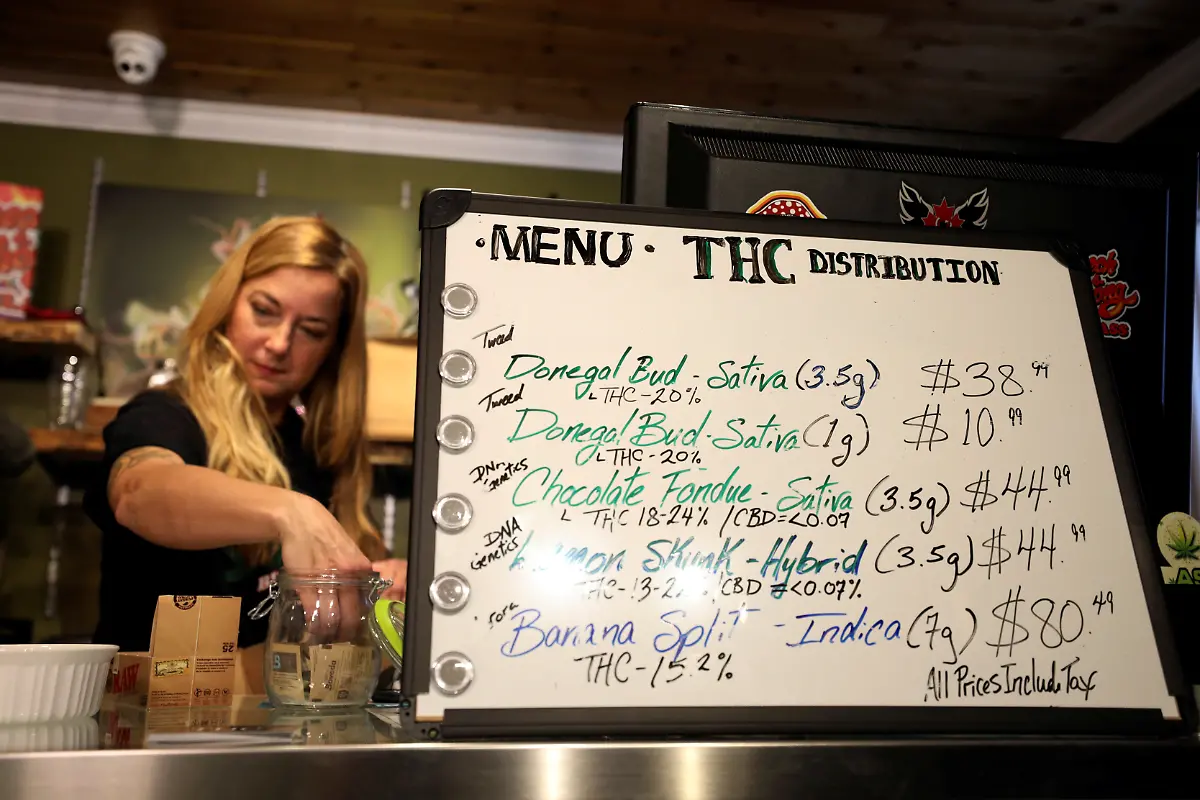 ·MENU· THC DISTRIBUTION
Tweed
Donegal Bud - Sativa (3.5g) $38.99
THC-20%
Tweed
Donegal Bud-Sativa (1g) $10.99
THC-20%
DNA Genetics
Chocolate Fondue - Sativa (3.5g) $44.99
THC 18-24% / CBD=<0.07
DNA
Genetics
Lemon Skunk - Hybrid (3.5g) $44.99
/CBD =<0.07%
Banana Split - Indica (7g) $80.49
THC-15.2%
All Prices Include Tax
RAW
25
Boveda